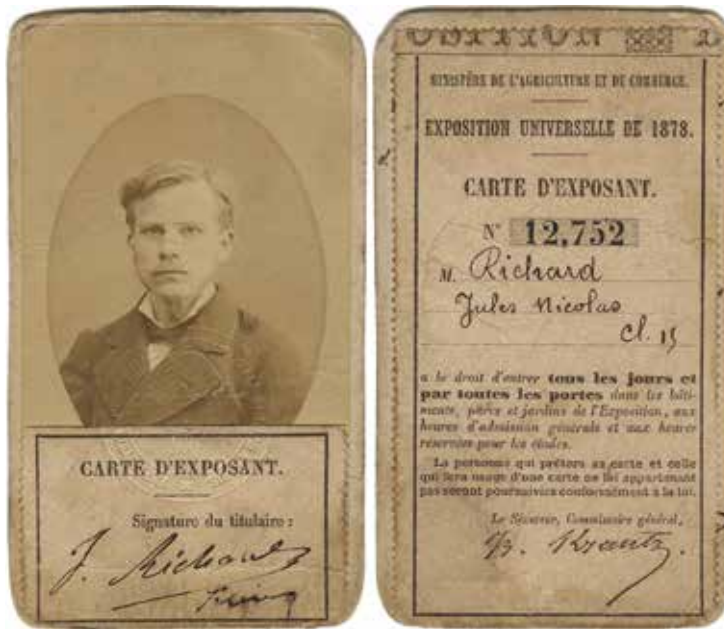 CARTE D'EXPOSANT.
Signature du titulaire :
J. Richard
MINISTÈRE DE L'AGRICULTURE ET DU COMMERCE.
EXPOSITION UNIVERSELLE DE 1878.
CARTE D'EXPOSANT.
N° 12,752
M. Richard
Jules Nicolas
Cl. 15
a le droit d'entrer tous les jours et
par toutes les portes dans les bâti-
ments, parcs et jardins de l'Exposition, aux
heures d'admission générale et aux heures
réservées pour les études.
La personne qui prêtera sa carte et celle
qui fera usage d'une carte ne lui appartenant
pas seront poursuivies conformément à la loi.
Le Sénateur, Commissaire général,
Krantz.